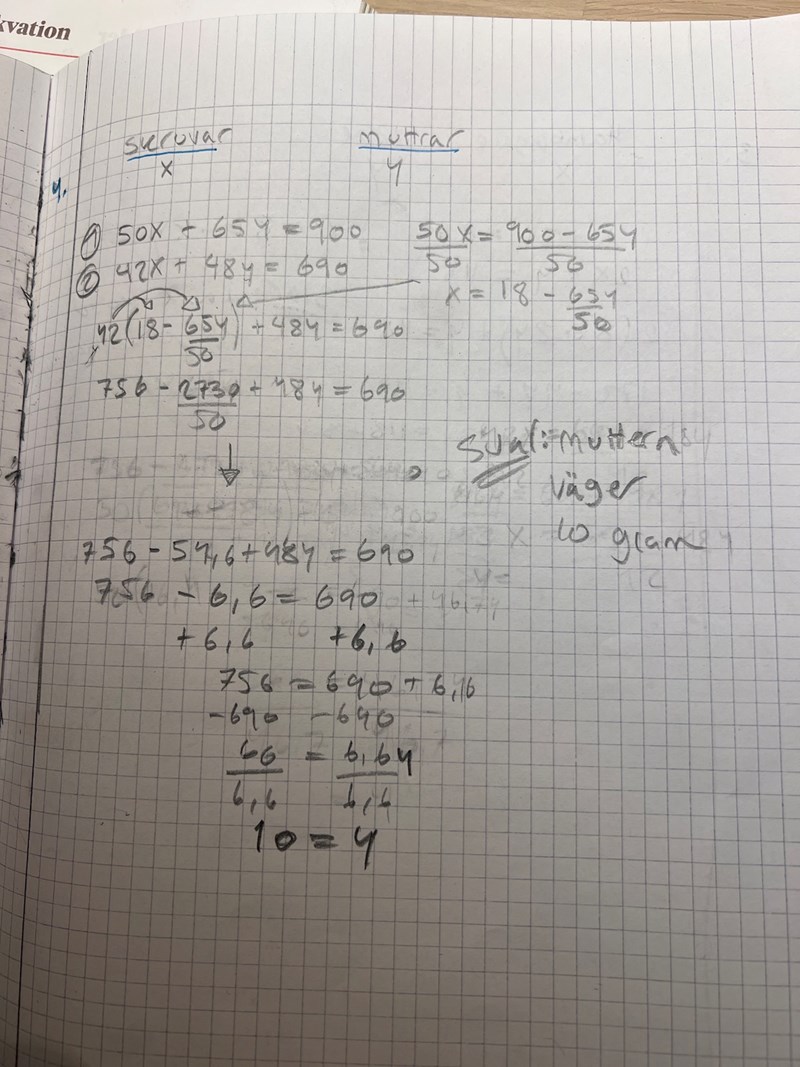 kvation
skruvar muttrar
x y
4.
① 50x + 65y = 900
50x/50 = 900 - 65y/50
② 42x + 48y = 690
x = 18 - 65y/50
42(18 - 65y/50) + 48y = 690
756 - 2730/50 + 48y = 690
Svar: muttern
väger
10 gram
756 - 54,6 + 48y = 690
756 - 6,6 = 690
+6,6 +6,6
756 = 690 + 6,6
-690 -690
66/6,6 = 6,6y/6,6
10 = y